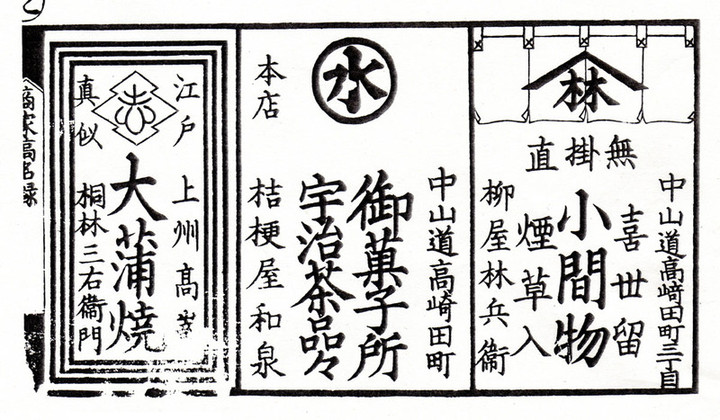 林
無掛直
中山道高崎田町三丁目
喜世留
小間物
煙草入
柳屋林兵衞
水
本店
中山道高崎田町
御菓子所
宇治茶品々
桔梗屋和泉
江戸
真似
上州高崎
大蒲焼
桐林三右衞門